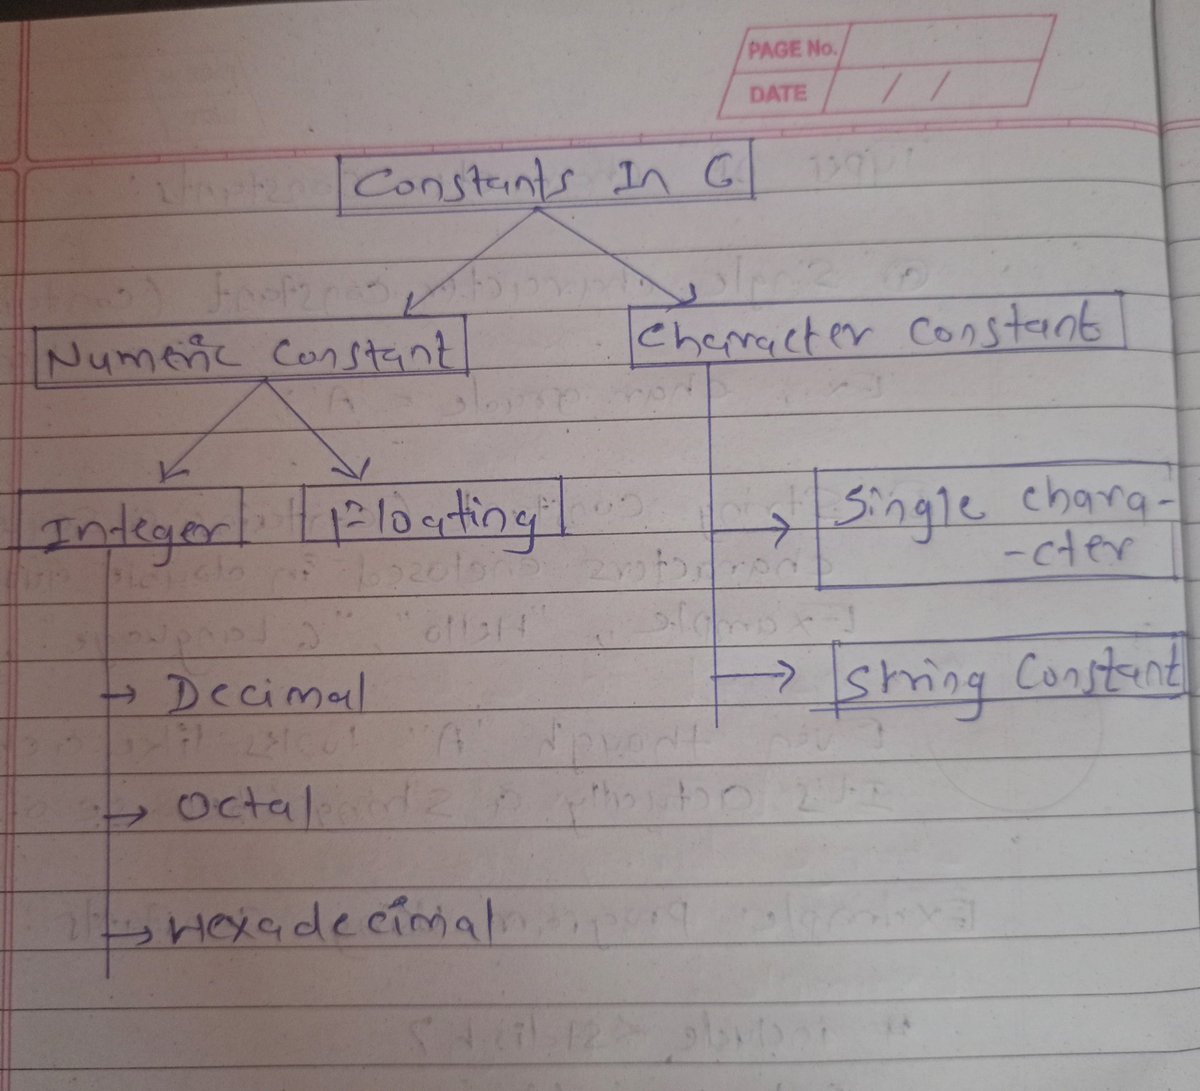 PAGE No.
DATE / /
Constants In C
Numeric Constant
Character Constant
Integer
Floating
Single chara-
-cter
String Constant
→ Decimal
→ Octal
→ Hexadecimal